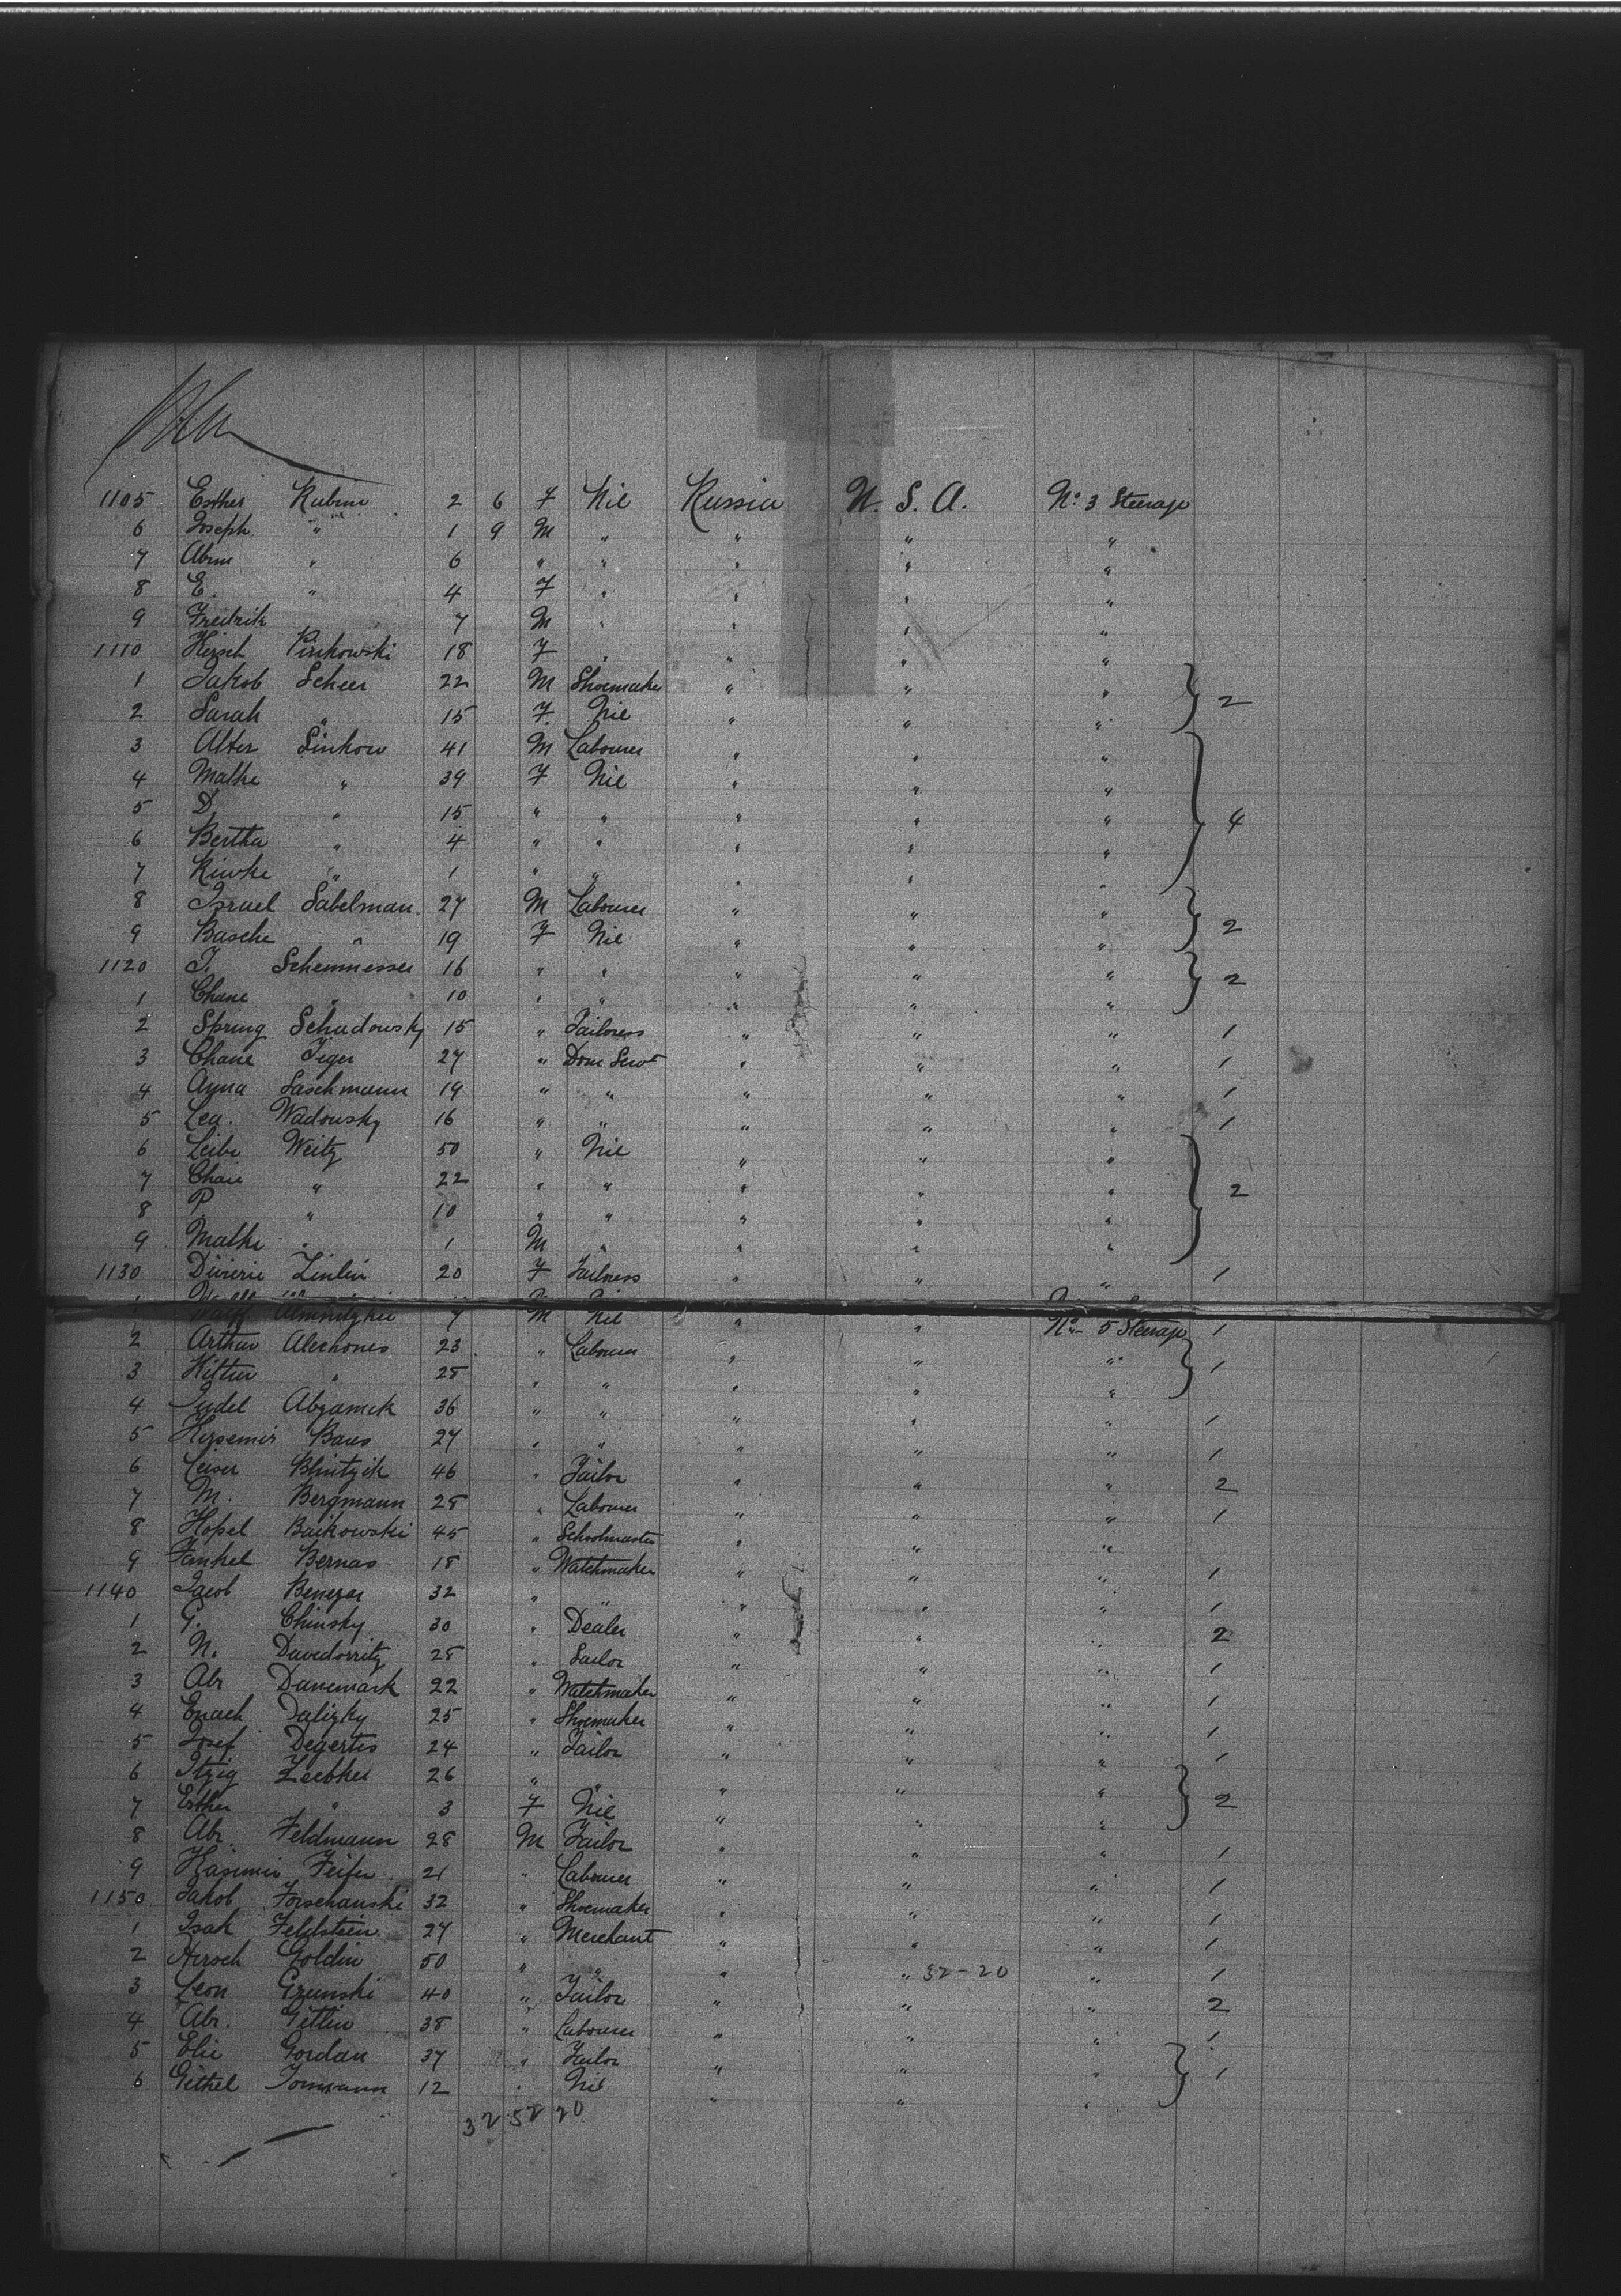 1105 Esther Rubin 2 6 F Nil Russia U. S. A. No 3 Steerage
6 Joseph " 1 9 M " " " "
7 Abm " 6 " " " " "
8 E. " 4 F " " " "
9 Fredrik 7 M " " " "
1110 Hirsch Pinkowski 18 F " " " "
1 Jakob Scheer 22 M Shoemaker " " " } 2
2 Sarah " 15 F Nil " " "
3 Alter Sinkow 41 M Labourer " " "
4 Malke " 39 F Nil " " "
5 D. " 15 " " " " " } 4
6 Bertha " 4 " " " " "
7 Riwke " 1 " " " " "
8 Israel Sabelman 27 M Labourer " " " } 2
9 Basche " 19 F Nil " " "
1120 J. 16 " " " " " } 2
1 Chane " 10 " " " " "
2 Spring Schudowsky 15 " Tailoress " " " 1
3 Chane Jeger 27 " Dom Servt " " " 1
4 Anna Saschmann 19 " " " " " 1
5 Lea. Wadousky 16 " " " " " 1
6 Leibe Weitz 50 " Nil " " "
7 Chaie " 22 " " " " " } 2
8 P. " 10 " " " " "
9 Malke " 1 M " " " "
1130 Zinlin 20 F Tailoress " " " 1
1 Wolff 7 M Nil " " No 5 Steerage 1
2 Arthur Alechones 23 " Labourer " " " } 1
3 " 28 " " " " "
4 Judel Abramek 36 " " " " " 1
5 Baus 27 " " " " " 1
6 Leiser 46 " Tailor " " " 2
7 M. Bergmann 28 " Labourer " " " 1
8 Hopel Baikowski 45 " Schoolmaster " " "
9 Jankel Bernas 18 " Watchmaker " " " 1
1140 Jacob 32 " " " " " 1
1 G. Chinsky 30 " Dealer " " " 2
2 N. 28 " Sailor " " " 1
3 Abr Danemark 22 " Watchmaker " " " 1
4 Enach Dalizky 25 " Shoemaker " " " 1
5 Josef Degertis 24 " Tailor " " " 1
6 Itzig 26 " " " " " } 2
7 Esther " 3 F Nil " " "
8 Abr. Feldmann 28 M Tailor " " " 1
9 Kasimir Feifer 21 " Labourer " " " 1
1150 Jakob Forschanski 32 " Shoemaker " " " 1
1 Isak Feldstein 27 " Merchant " " " 1
2 Hirsch Goldin 50 " " " " 32-20 " 1
3 Leon Grunski 40 " Tailor " " " 2
4 Abr. Gitlin 38 " Labourer " " " 1
5 Elie Gordan 37 " Tailor " " " } 1
6 Gethel 12 " Nil " " "
32 52 20